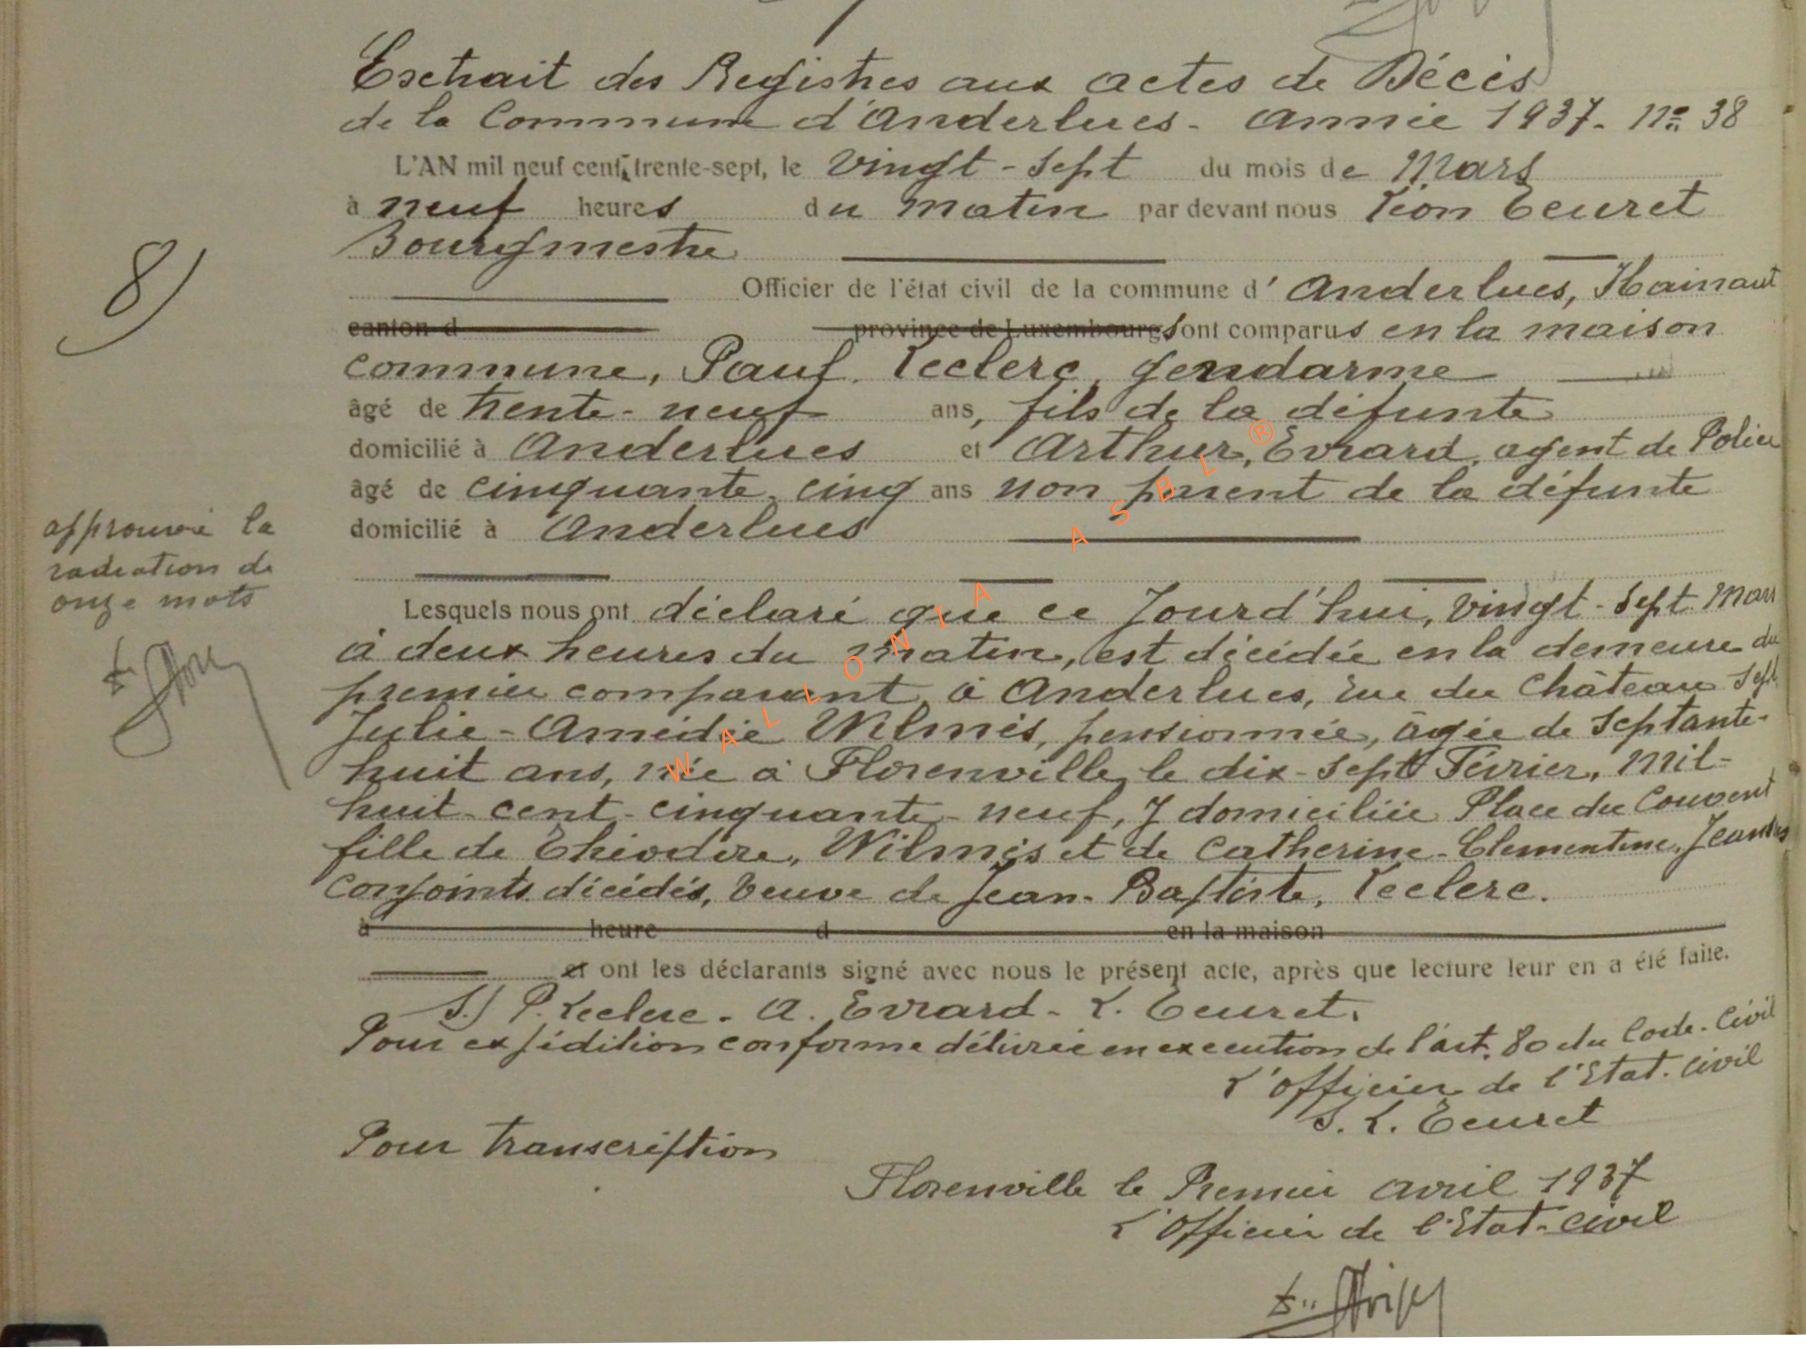 Extrait des Registres aux actes de Décès
de la Commune d'Anderlues - Année 1937 - No 38
L'AN mil neuf cent trente-sept, le vingt-sept du mois de Mars
à neuf heures du matin par devant nous Léon Teuret
Bourgmestre
Officier de l'état civil de la commune d'Anderlues, Hainaut
canton d province de Luxembourg sont comparus en la maison
commune, Paul Leclerc, gendarme
âgé de trente-neuf ans, fils de la défunte
domicilié à Anderlues et Arthur, Evrard, agent de Police
âgé de cinquante cinq ans non parent de la défunte
domicilié à Anderlues
8)
approuvé la
radiation de
onze mots
Lesquels nous ont déclaré que ce Jourd'hui, vingt-sept Mars
à deux heures du matin, est décédée en la demeure du
premier comparant à Anderlues, rue du Château Sept
Julie-Amédée Wilmès, pensionnée, âgée de septante-
huit ans, née à Florenville le dix-sept Février, mil-
huit-cent-cinquante-neuf, y domiciliée Place du Couvent
fille de Théodore, Wilmès et de Catherine-Clementine,
conjoints décédés, veuve de Jean-Baptiste, Leclerc.
à heure d en la maison
et ont les déclarants signé avec nous le présent acte, après que lecture leur en a été faite.
S./ P. Leclerc - A. Evrard - L. Teuret.
Pour expédition conforme délivrée en execution de l'art. 80 du Code-Civil
L'officier de l'Etat-Civil
S. L. Teuret
Pour transcription
Florenville le Premier avril 1937
L'Officier de l'Etat-Civil
WALLONIA ASBL ®